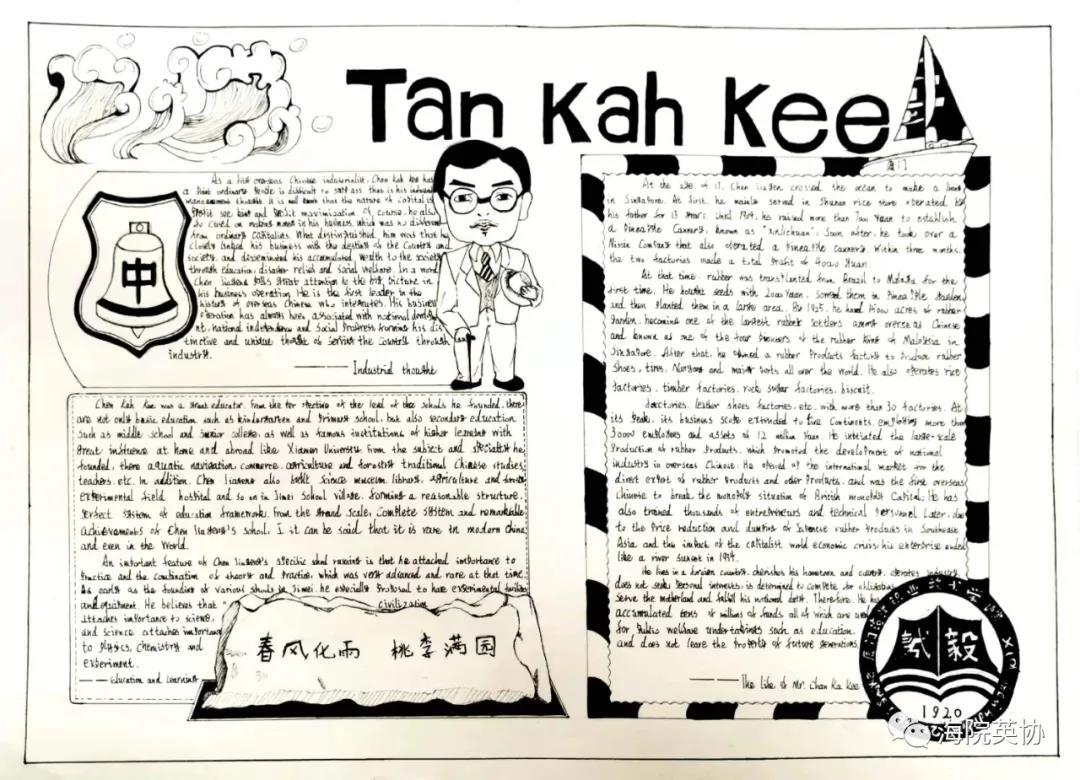 Tan Kah Kee
厦门
As a big overseas Chinese industrialist, Chen kah kee has
a point ordinary people is difficult to surpass, that is his industrial
management thought. It is well known that the nature of Capital is
Profit see king and Profit maximization. Of course, he also
from ordinary capitalists. What distinguished him was that he
closely linked his business with the destiny of the Country and
society, and disseminated his accumulated wealth to the society
through education, disaster relief and social welfare. In a word
Chen Jiageng pays great attention to the big picture in
his business operation. He is the first leader in the
history of overseas Chinese who integrates. His business
operation has always been associated with national develop
nt, national independence and social Progress forming his dis
tinctive and unique thought of serving the Country through
industry.
—— Industrial thought
中
Chen Kah Kee was a great educator. From the perspective of the level of the schools he founded, there
are not only basic education such as kindergarten and Primary school, but also secondary education
such as middle school and junior college, as well as famous institutions of higher learning with
great influence at home and abroad like Xiamen University. From the subject and specialist he
founded, there aquatic navigation commerce, agriculture and forestry traditional Chinese studies,
teachers, etc. In addition, Chen Jiageng also built science museum library, agriculture and forestry
experimental field hospital and so on in Jimei School village, forming a reasonable structure,
perfect system of education framework. From the grand scale, complete system and remarkable
achievements of Chen Jiageng's school, I it can be said that it is rare in modern China
and even in the World.
An important feature of Chen Jiageng's specific school running is that he attached importance to
Practice and the combination of theory and Practice, which was very advanced and rare at that time.
As early as the founding of various schools in Jimei, he especially proposal to have experimental facilities
and equipment. He believes that " civilization
attaches importance to science,
and science attaches importance
to physics, chemistry and
experiment.
—— Education and Learning
春风化雨 桃李满园
At the age of 17, Chen Jiageng crossed the ocean to make a living
in Singapore. At first, he mainly served in Shunan rice store operated by
his father for 13 years. Until 1904, he raised more than 7000 Yuan to establish
a Pineapple Cannery, known as "Xinlichuan". Soon after, he took over a
Nissin Company that also operated a Pineapple Cannery. Within three months,
the two factories made a total Profit of Yuan.
At that time, rubber was transplanted from Brazil to Malaya for the
first time. He bought seeds with Yuan, Sowed them in Pineapple Garden
and then Planted them in a large area. By 1925, he had acres of rubber
Garden, becoming one of the largest rubber settlers among overseas Chinese
and known as one of the four Pioneers of the rubber King of Malaysia in
Singapore. After that, he opened a rubber Products factory to Produce rubber
shoes, tires, and major sorts all over the world. He also operates rice
factories, timber factories, rock sugar factories, biscuit
factories, leather shoes factories, etc. with more than 30 factories. At
its peak, its business scope extended to five Continents, employing more than
30000 employees and assets of 12 million Yuan. He initiated the large-scale
Production of rubber Products, which Promoted the development of national
industry in overseas Chinese. He opened up the international market for the
direct export of rubber Products and other Products, and was the first overseas
Chinese to break the monopoly situation of British monopoly Capital. He has
also trained thousands of entrepreneurs and technical personnel. Later, due
to the Price reduction and dumping of Japanese rubber Products in Southeast
Asia and the impact of the capitalist world economic crisis, his enterprise ended
like a river sunset in 1934.
He lives in a foreign country, cherishes his hometown and country, operates industry,
does not seek Personal interests, is determined to compete for
serve the motherland and fulfill his national duty. Therefore, He has
accumulated tens of millions of funds, all of which are used
for Public welfare undertakings such as education,
and does not leave the Property of future generations.
—— The life of Mr. Chan Ka Kee
誠毅
1920
海院英协